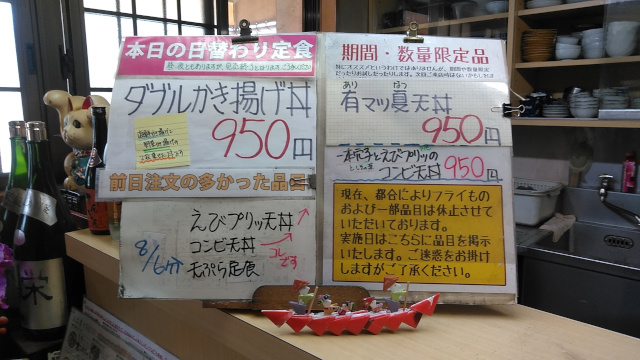 本日の日替わり定食
ダブルかき揚げ丼
950円
前日注文の多かった品目
8/6分
えびプリッ天丼
コンビ天丼
コレです
天ぷら定食
期間・数量限定品
あり なつ
有マッ夏天丼
950円
一本穴子とえびプリッの
コンビ天丼 950円
現在、都合によりフライもの
および一部品目は休止させて
いただいております。
実施日はこちらに品目を掲示
いたします。ご迷惑をお掛け
しますがご了承ください。
栄